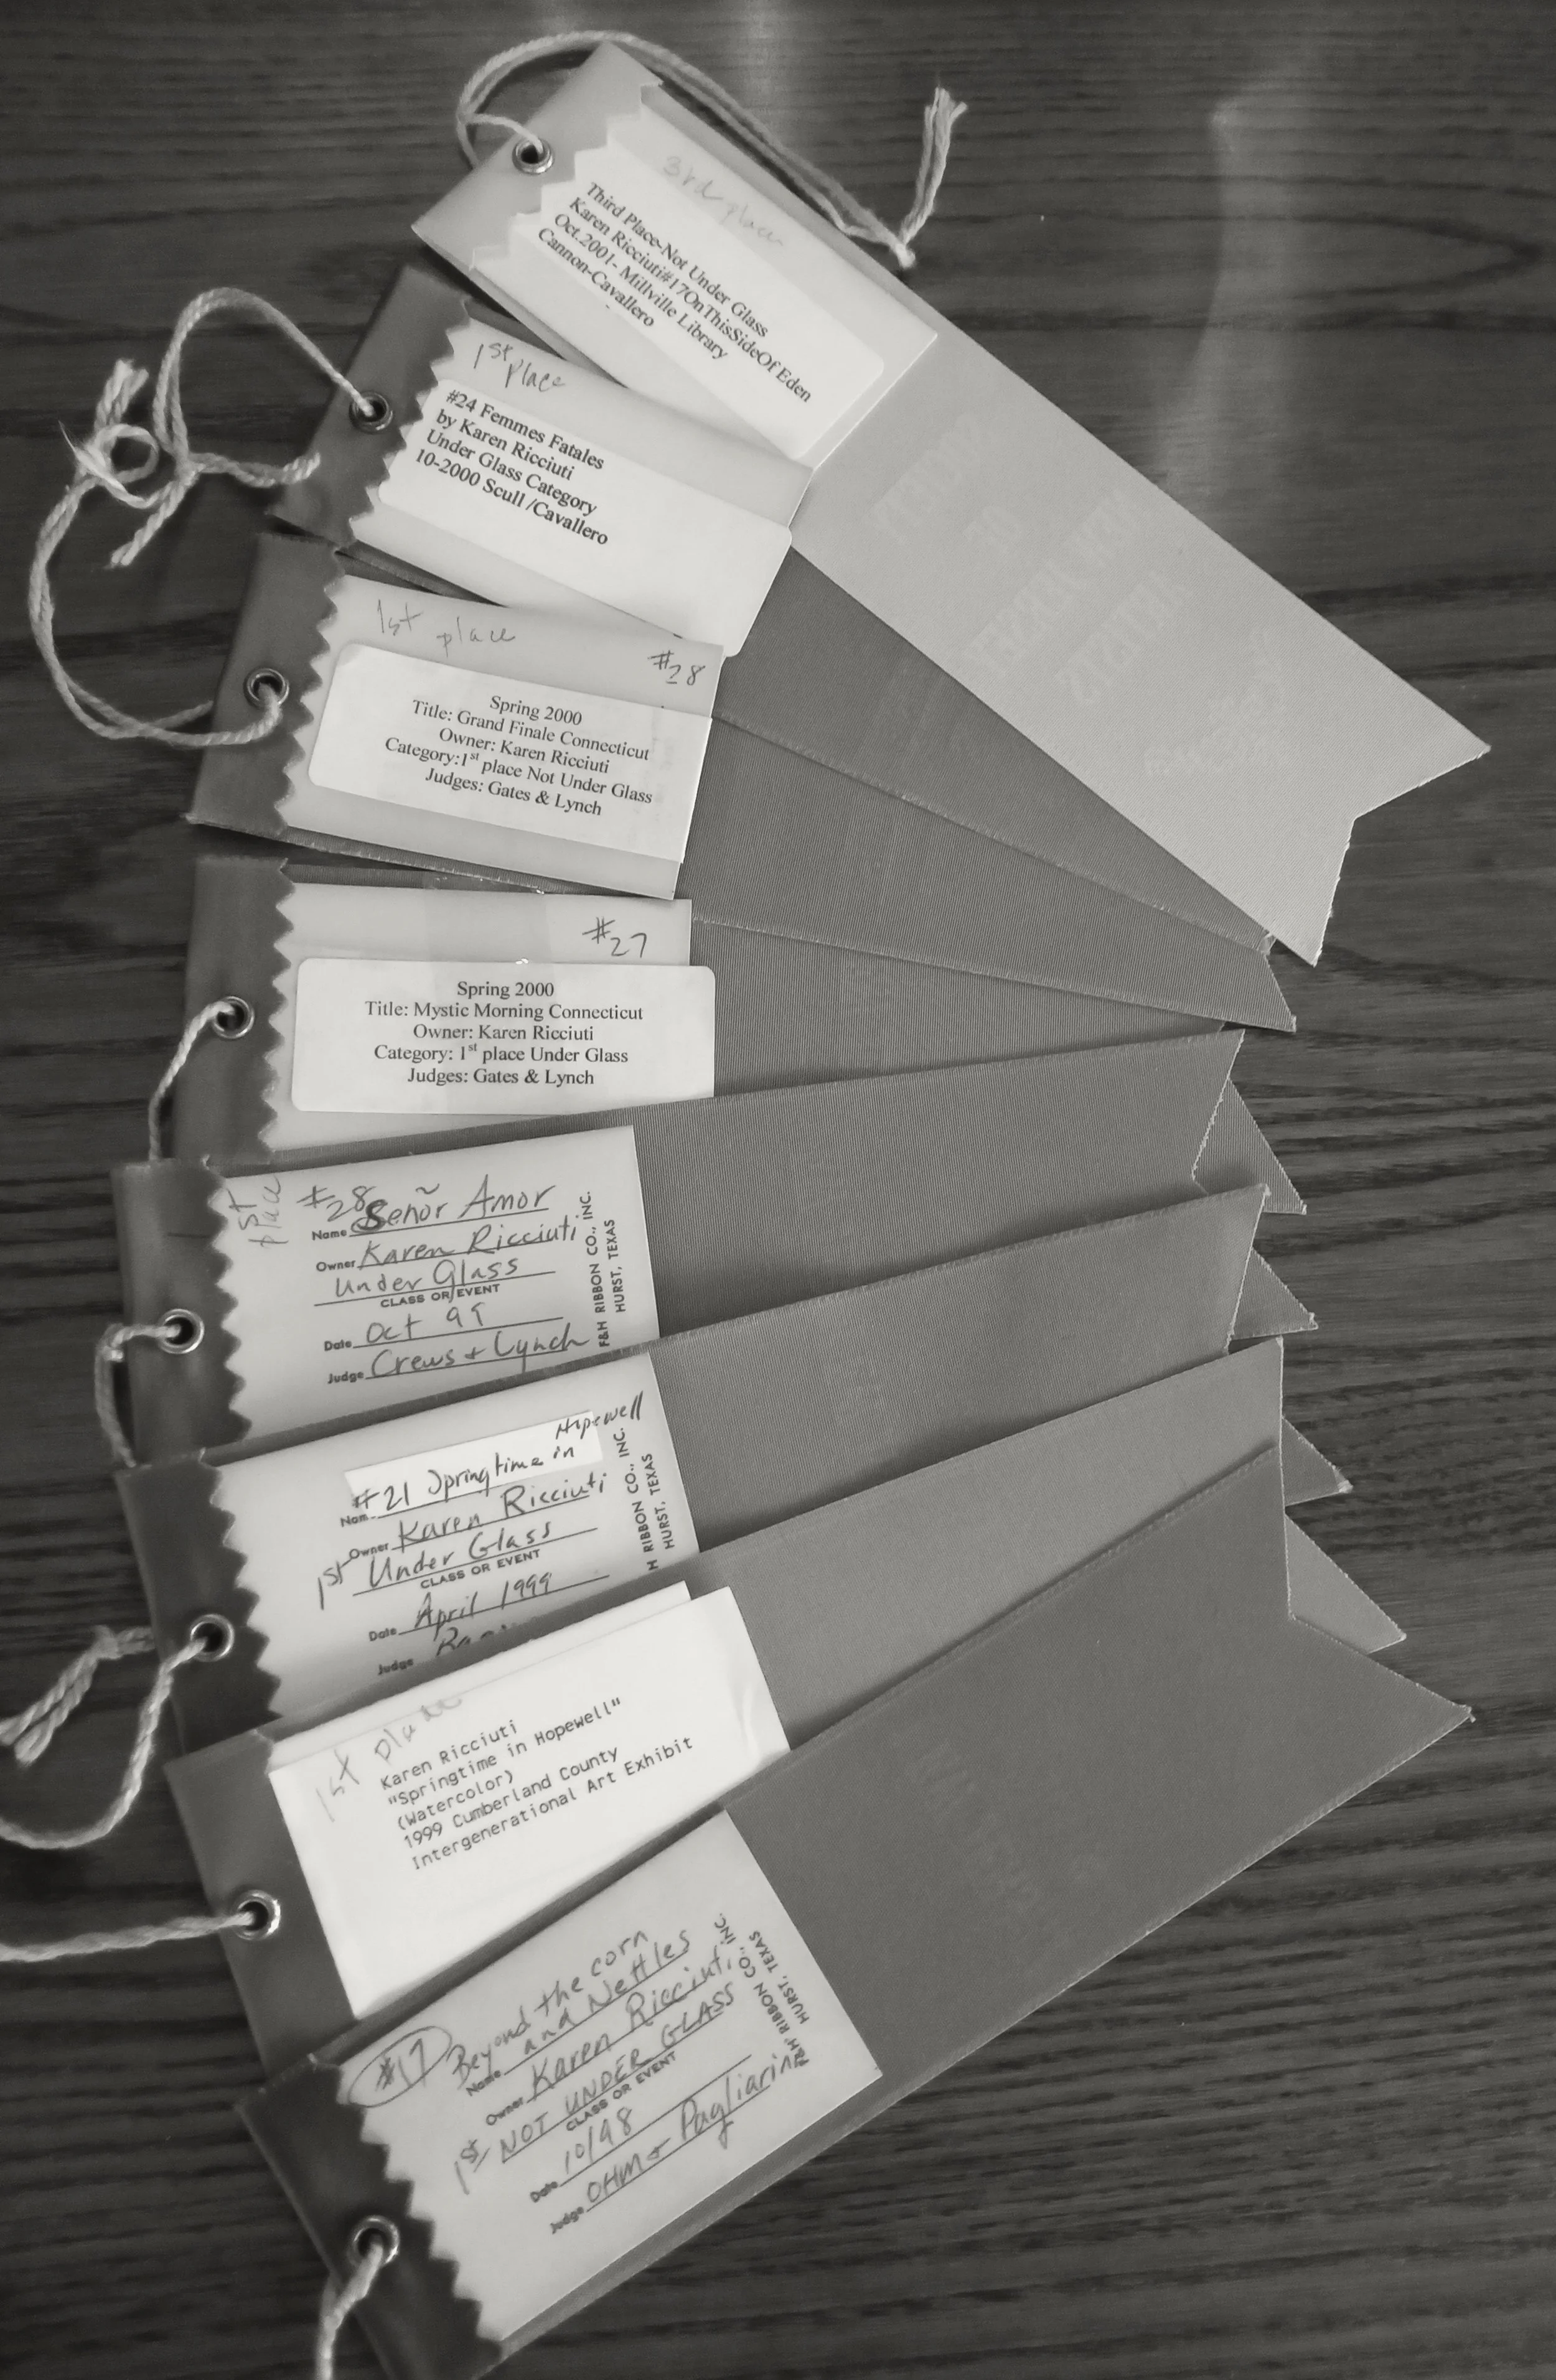 3rd place
Third Place-Not Under Glass
Karen Ricciuti#17OnThisSideOf Eden
Oct.2001- Millville Library
Cannon-Cavallero
1st place
#24 Femmes Fatales
by Karen Ricciuti
Under Glass Category
10-2000 Scull /Cavallero
1st place
#28
Spring 2000
Title: Grand Finale Connecticut
Owner: Karen Ricciuti
Category:1st place Not Under Glass
Judges: Gates & Lynch
#27
Spring 2000
Title: Mystic Morning Connecticut
Owner: Karen Ricciuti
Category: 1st place Under Glass
Judges: Gates & Lynch
1st place
#28
Name Señor Amor
Owner Karen Ricciuti
Under Glass
CLASS OR EVENT
Date Oct 99
Judge Crews + Lynch
F&H RIBBON CO., INC.
HURST, TEXAS
Hopewell
#21 Springtime in
Nam
Owner Karen Ricciuti
1st Under Glass
CLASS OR EVENT
Date April 1999
Judge
H RIBBON CO., INC.
HURST, TEXAS
1st place
Karen Ricciuti
"Springtime in Hopewell"
(Watercolor)
1999 Cumberland County
Intergenerational Art Exhibit
#17
Beyond the corn
Name and Nettles
Owner Karen Ricciuti
1st NOT UNDER GLASS
CLASS OR EVENT
Date 10/98
Judge OHM + Pagliarini
F&H RIBBON CO., INC.
HURST, TEXAS